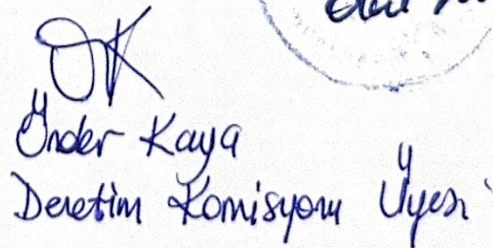 ÖK
Önder Kaya
Denetim Komisyonu Üyesi